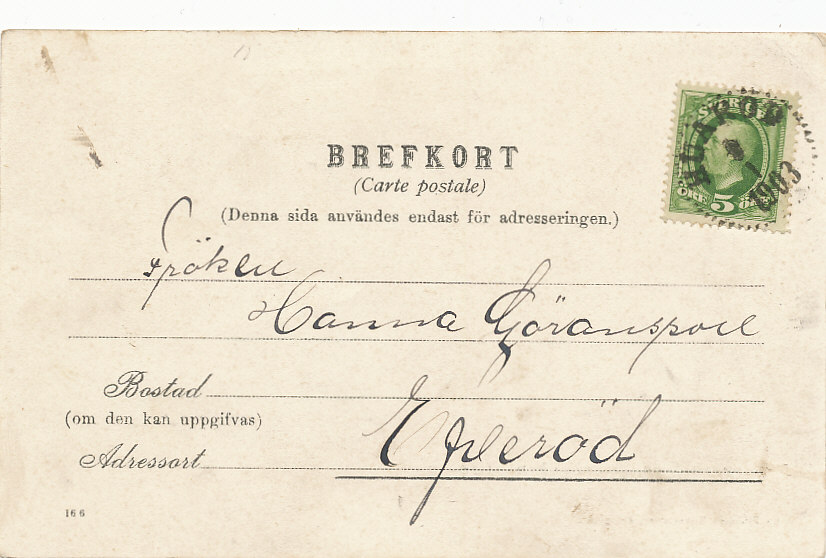 BREFKORT
(Carte postale)
(Denna sida användes endast för adresseringen.)
SVERIGE
5 ÖRE
1903
Fröken
Hanna Göransson
Bostad
(om den kan uppgifvas)
Eljeröd
Adressort
166